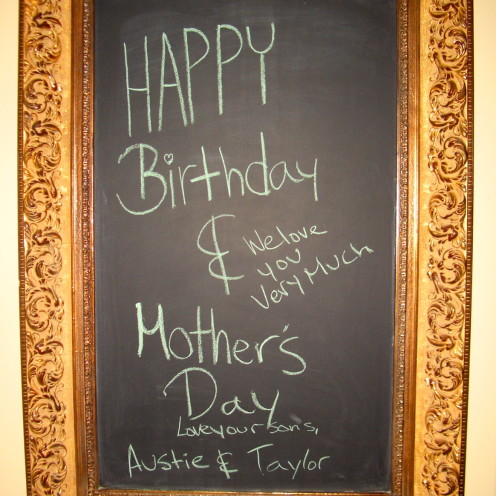 HAPPY
Birthday
& We love
you
Very Much
Mother's
Day
Love your son's,
Austie & Taylor